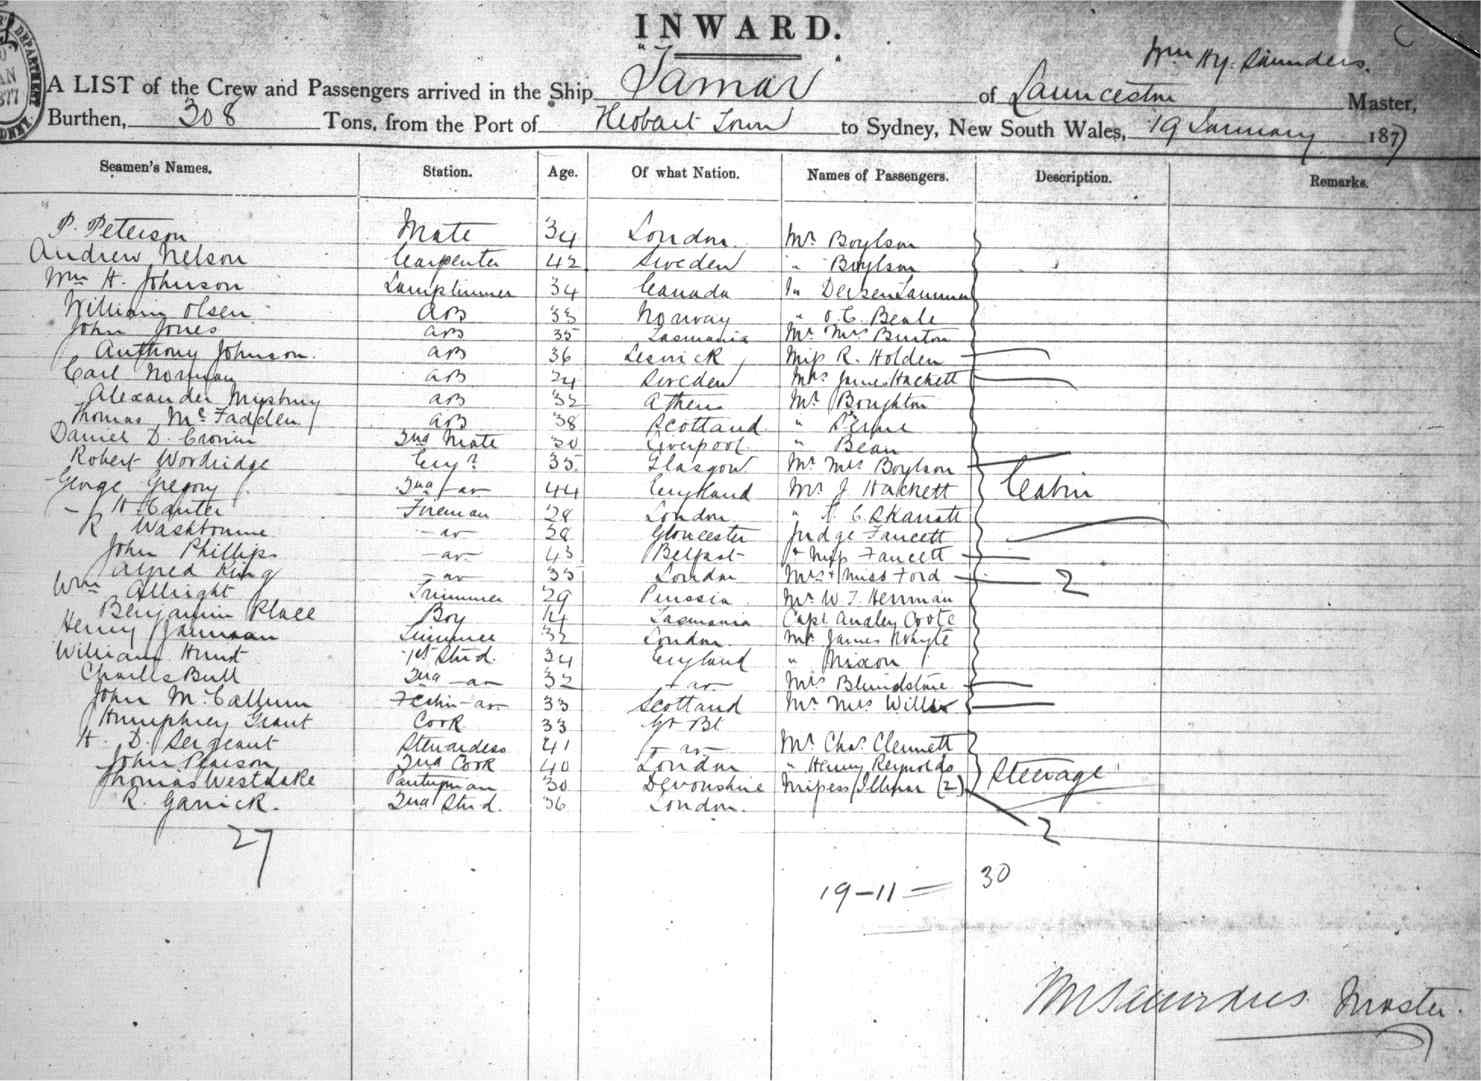 INWARD.
Wm Hy. Saunders.
A LIST of the Crew and Passengers arrived in the Ship "Tamar" of Launceston Master,
Burthen, 308 Tons, from the Port of Hobart Town to Sydney, New South Wales, 19 January 1877
Seamen's Names. Station. Age. Of what Nation. Names of Passengers. Description. Remarks.
P. Peterson Mate 34 London Mr Boylson
Andrew Nelson Carpenter 42 Sweden " Boylson
Wm H. Johnson Lamptrimmer 34 Canada
William Olsen AB 33 Norway " O. C. Beale
John Jones AB 35 Tasmania Mr Mrs Burton
Anthony Johnson. AB 36 Miss R. Holden
Carl Norman AB 24 Sweden Mrs James Hackett
Alexander AB 32 Athens Mr Boughton
Thomas Mc Fadden AB 38 Scotland "
Daniel D. Cronin 2nd Mate 30 Liverpool " Bean
Robert Wordridge Engr 35 Glasgow Mr Mrs Boylson
George Gregory 2nd -do- 44 England Mr J Hackett Cabin
H Canter Fireman 28 London "
R Washbourne -do- 28 Gloucester Judge Faucett
John Phillips -do- 43 Belfast + Miss Faucett
Alfred King -do- 33 London Mrs + Miss Ford 2
Wm Allright Trimmer 29 Prussia Mr W. J. Herrman
Benjamin Place Boy 14 Tasmania Capt Audley Coote
Henry Trimmer 32 London Mr James Whyte
William Hunt 1st Stwd. 34 England " Nixon
Charles Bull 2nd -do- 32 -do- Mrs Blundstone
John McCallum 33 Scotland Mr Mrs Willis
Humphrey Grant Cook 33 Gt Bt
H. D. Sergeant Stewardess 41 -do- Mr Chas. Clennett
John Pearson 2nd Cook 40 London " Henry Reynolds
Thomas Westlake Pantryman 30 Devonshire Misses (2) Steerage
R. Garrick. 2nd Stwd. 36 London.
27 2
19-11 = 30
Wm Saunders Master.